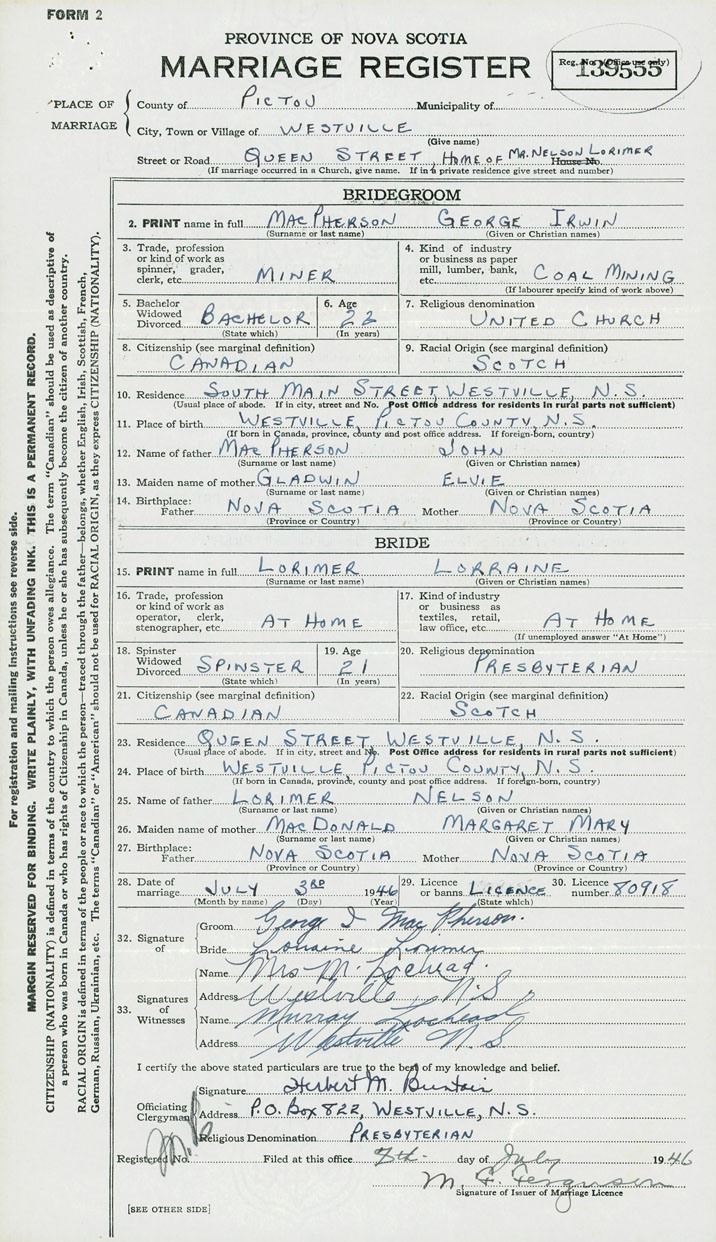 FORM 2
PROVINCE OF NOVA SCOTIA
MARRIAGE REGISTER
Reg. No. (Office use only)
139555
PLACE OF MARRIAGE
County of PICTOU Municipality of
City, Town or Village of WESTVILLE
(Give name)
Street or Road QUEEN STREET, HOME OF MR. NELSON LORIMER House No.
(If marriage occurred in a Church, give name. If in a private residence give street and number)
BRIDEGROOM
2. PRINT name in full MACPHERSON GEORGE IRWIN
(Surname or last name) (Given or Christian names)
3. Trade, profession or kind of work as spinner, grader, clerk, etc. MINER
4. Kind of industry or business as paper mill, lumber, bank, etc. COAL MINING
(If labourer specify kind of work above)
5. Bachelor Widowed Divorced BACHELOR
(State which)
6. Age 22
(In years)
7. Religious denomination
UNITED CHURCH
8. Citizenship (see marginal definition)
CANADIAN
9. Racial Origin (see marginal definition)
SCOTCH
10. Residence SOUTH MAIN STREET, WESTVILLE, N.S.
(Usual place of abode. If in city, street and No. Post Office address for residents in rural parts not sufficient)
11. Place of birth WESTVILLE, PICTOU COUNTY, N.S.
(If born in Canada, province, county and post office address. If foreign-born, country)
12. Name of father MACPHERSON JOHN
(Surname or last name) (Given or Christian names)
13. Maiden name of mother GLADWIN ELVIE
(Surname or last name) (Given or Christian names)
14. Birthplace: Father NOVA SCOTIA Mother NOVA SCOTIA
(Province or Country) (Province or Country)
BRIDE
15. PRINT name in full LORIMER LORRAINE
(Surname or last name) (Given or Christian names)
16. Trade, profession or kind of work as operator, clerk, stenographer, etc. AT HOME
17. Kind of industry or business as textiles, retail, law office, etc. AT HOME
(If unemployed answer "At Home")
18. Spinster Widowed Divorced SPINSTER
(State which)
19. Age 21
(In years)
20. Religious denomination
PRESBYTERIAN
21. Citizenship (see marginal definition)
CANADIAN
22. Racial Origin (see marginal definition)
SCOTCH
23. Residence QUEEN STREET WESTVILLE, N.S.
(Usual place of abode. If in city, street and No. Post Office address for residents in rural parts not sufficient)
24. Place of birth WESTVILLE, PICTOU COUNTY, N.S.
(If born in Canada, province, county and post office address. If foreign-born, country)
25. Name of father LORIMER NELSON
(Surname or last name) (Given or Christian names)
26. Maiden name of mother MACDONALD MARGARET MARY
(Surname or last name) (Given or Christian names)
27. Birthplace: Father NOVA SCOTIA Mother NOVA SCOTIA
(Province or Country) (Province or Country)
28. Date of marriage JULY 3RD 1946
(Month by name) (Day) (Year)
29. Licence or banns LICENCE
(State which)
30. Licence number 80918
32. Signature of
Groom George I MacPherson.
Bride Lorraine Lorimer
33. Signatures of Witnesses
Name Mrs M. Lochead.
Address Westville N.S.
Name Murray Lochead
Address Westville N.S.
I certify the above stated particulars are true to the best of my knowledge and belief.
Officiating Clergyman
Signature Herbert M. Buntain
Address P.O. BOX 822, WESTVILLE, N.S.
Religious Denomination PRESBYTERIAN
Registered No. Filed at this office day of July 1946
M. F. Ferguson
Signature of Issuer of Marriage Licence
[SEE OTHER SIDE]
For registration and mailing instructions see reverse side.
MARGIN RESERVED FOR BINDING. WRITE PLAINLY, WITH UNFADING INK. THIS IS A PERMANENT RECORD.
CITIZENSHIP (NATIONALITY) is defined in terms of the country to which the person owes allegiance. The term "Canadian" should be used as descriptive of
a person who was born in Canada or who has rights of Citizenship in Canada, unless he or she has subsequently become the citizen of another country.
RACIAL ORIGIN is defined in terms of the people or race to which the person—traced through the father—belongs, whether English, Irish, Scottish, French,
German, Russian, Ukrainian, etc. The terms "Canadian" or "American" should not be used for RACIAL ORIGIN, as they express CITIZENSHIP (NATIONALITY).